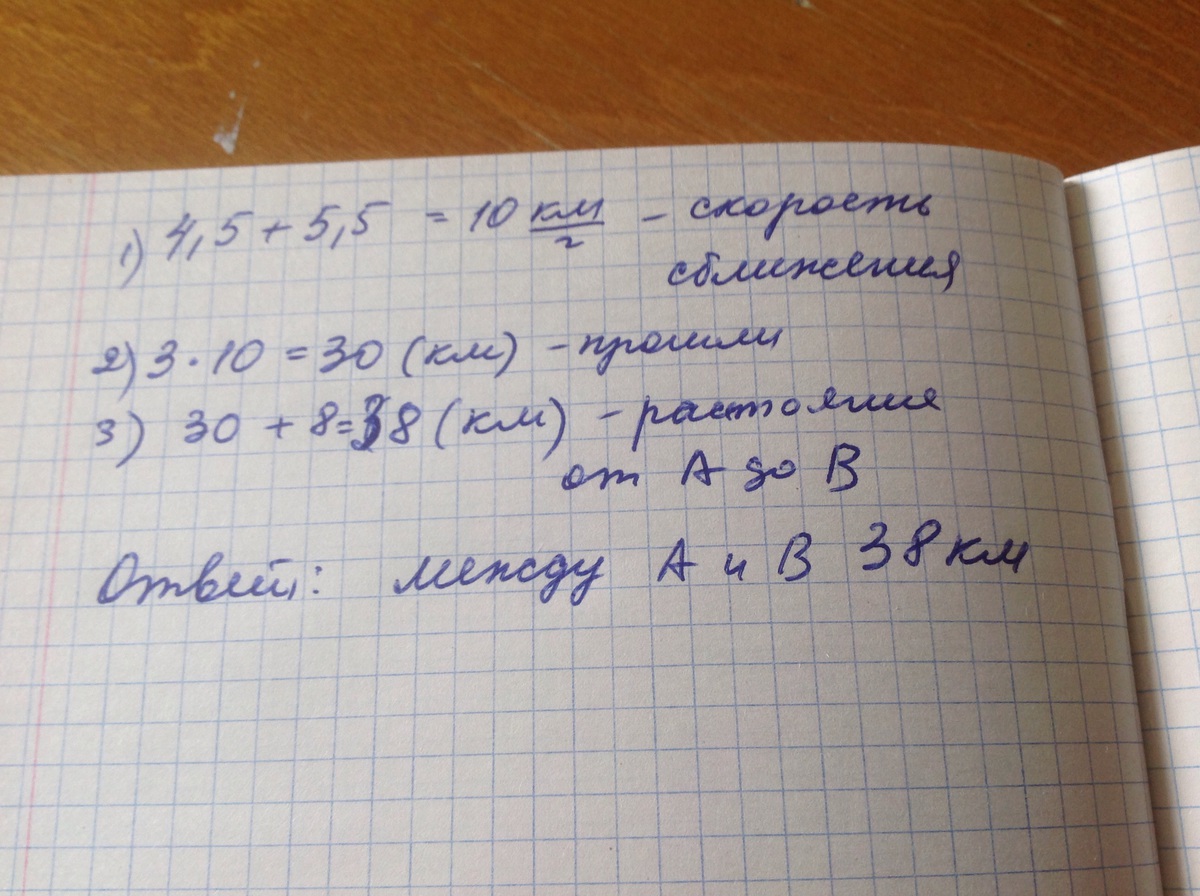 1) 4,5 + 5,5 = 10 км/г - скорость
сближения
2) 3 · 10 = 30 (км) - прошли
3) 30 + 8 = 38 (км) - растояния
от А до В
Ответ: между А и В 38 км